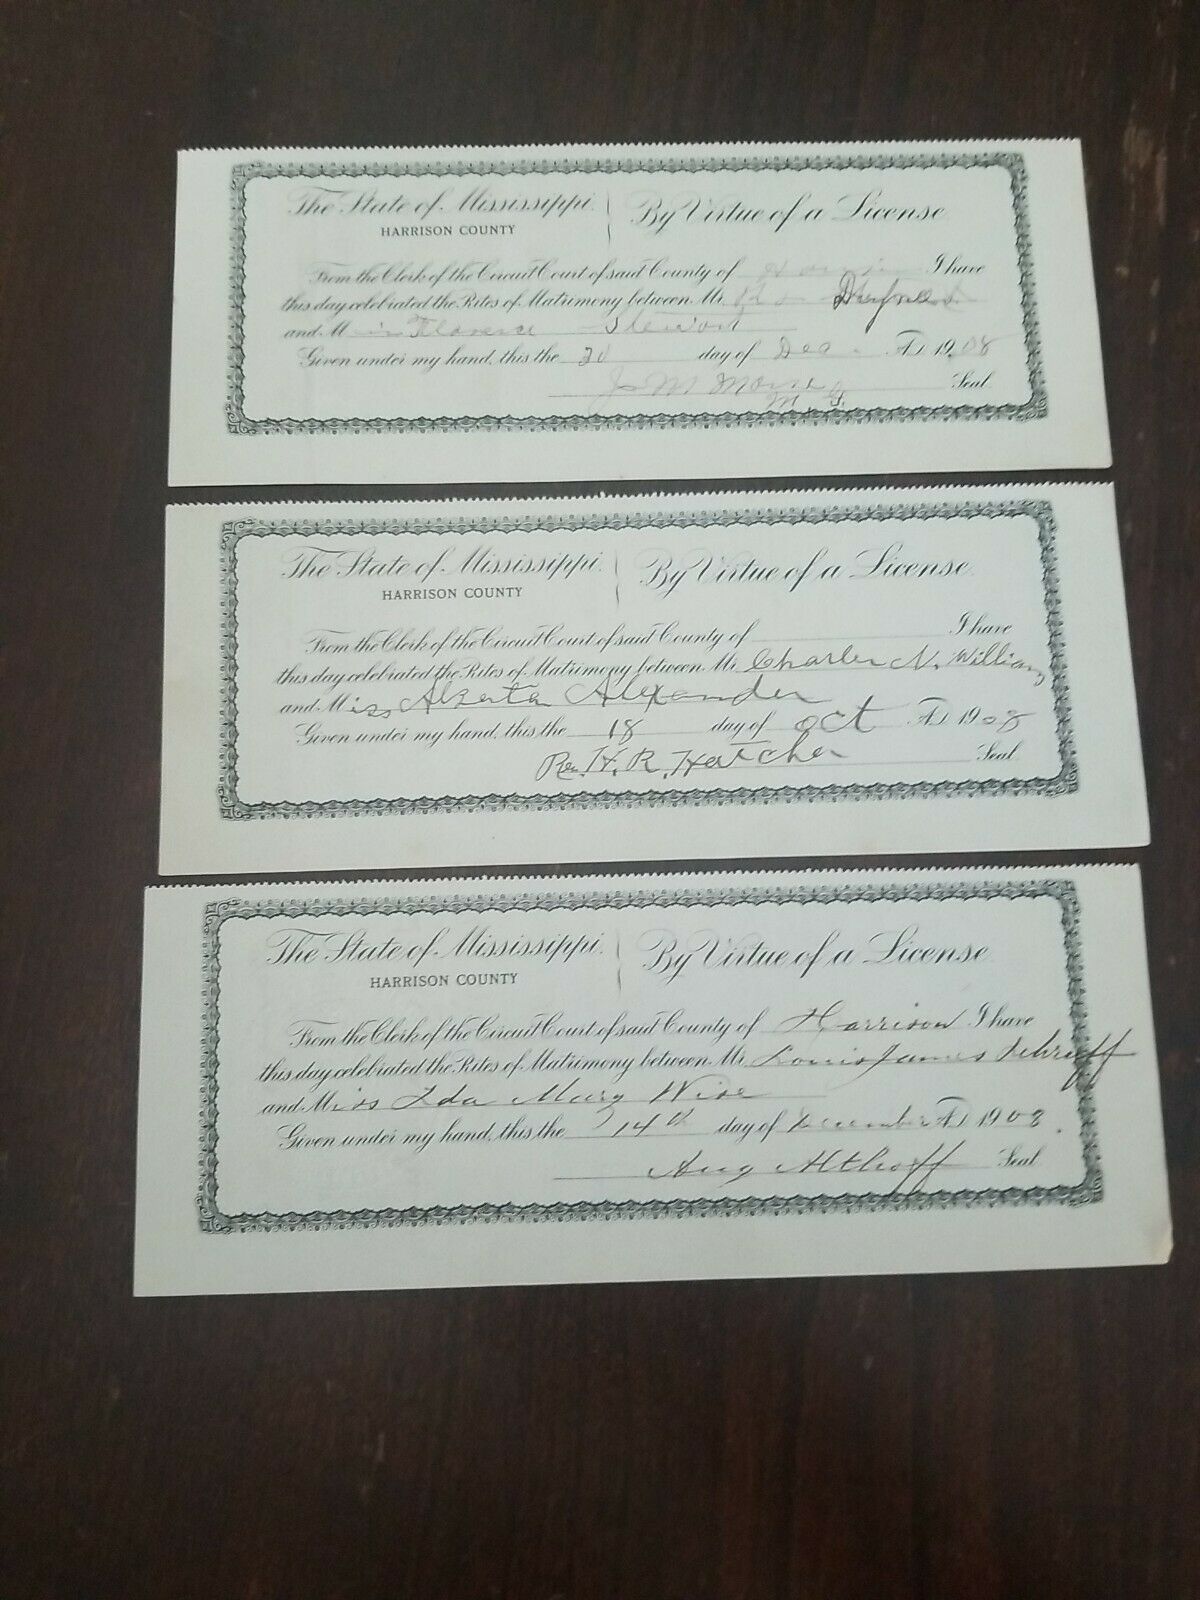 The State of Mississippi. By Virtue of a License
HARRISON COUNTY
From the Clerk of the Circuit Court of said County of I have
this day celebrated the Rites of Matrimony between Mr.
and Miss Florence Stewart
Given under my hand, this the day of Dec. A.D. 1908
J M Morse Seal.
The State of Mississippi. By Virtue of a License
HARRISON COUNTY
From the Clerk of the Circuit Court of said County of I have
this day celebrated the Rites of Matrimony between Mr. Charles N. Williams
and Miss Alberta Alexander
Given under my hand, this the 18 day of Oct A.D. 1908
Rev. H. R. Hatcher Seal.
The State of Mississippi. By Virtue of a License
HARRISON COUNTY
From the Clerk of the Circuit Court of said County of Harrison I have
this day celebrated the Rites of Matrimony between Mr. Louis James
and Miss Ida Mary Wise
Given under my hand, this the 14th day of December A.D. 1908.
Aug Althoff Seal.